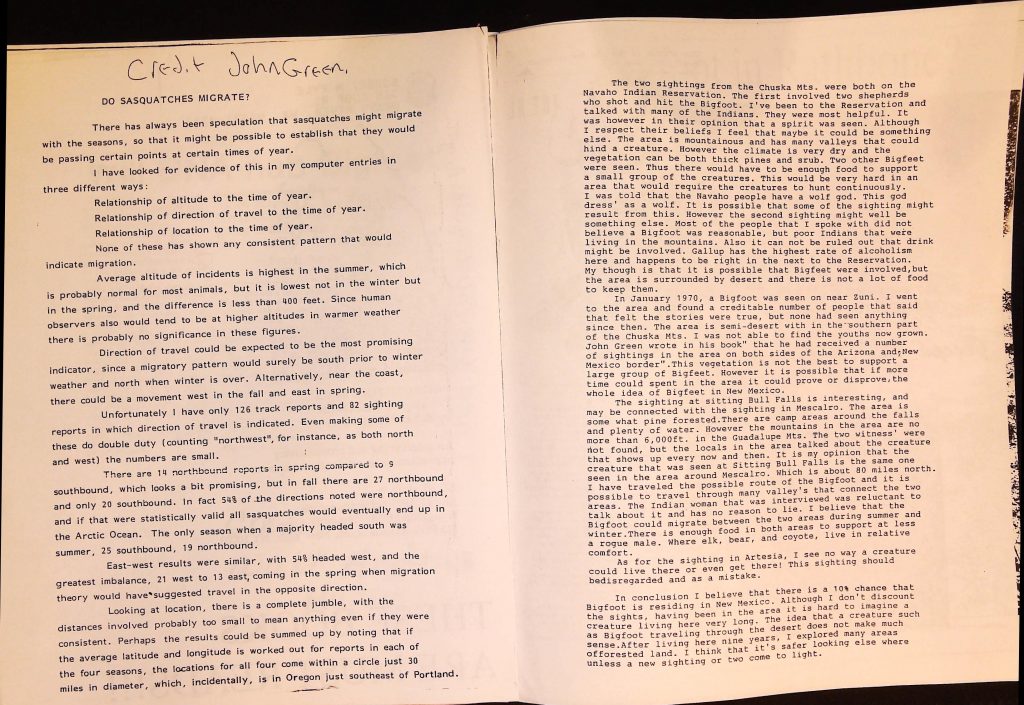 Credit John Green.
DO SASQUATCHES MIGRATE?
There has always been speculation that sasquatches might migrate
with the seasons, so that it might be possible to establish that they would
be passing certain points at certain times of year.
I have looked for evidence of this in my computer entries in
three different ways:
Relationship of altitude to the time of year.
Relationship of direction of travel to the time of year.
Relationship of location to the time of year.
None of these has shown any consistent pattern that would
indicate migration.
Average altitude of incidents is highest in the summer, which
is probably normal for most animals, but it is lowest not in the winter but
in the spring, and the difference is less than 400 feet. Since human
observers also would tend to be at higher altitudes in warmer weather
there is probably no significance in these figures.
Direction of travel could be expected to be the most promising
indicator, since a migratory pattern would surely be south prior to winter
weather and north when winter is over. Alternatively, near the coast,
there could be a movement west in the fall and east in spring.
Unfortunately I have only 126 track reports and 82 sighting
reports in which direction of travel is indicated. Even making some of
these do double duty (counting "northwest", for instance, as both north
and west) the numbers are small.
There are 14 northbound reports in spring compared to 9
southbound, which looks a bit promising, but in fall there are 27 northbound
and only 20 southbound. In fact 54% of the directions noted were northbound,
and if that were statistically valid all sasquatches would eventually end up in
the Arctic Ocean. The only season when a majority headed south was
summer, 25 southbound, 19 northbound.
East-west results were similar, with 54% headed west, and the
greatest imbalance, 21 west to 13 east, coming in the spring when migration
theory would have suggested travel in the opposite direction.
Looking at location, there is a complete jumble, with the
distances involved probably too small to mean anything even if they were
consistent. Perhaps the results could be summed up by noting that if
the average latitude and longitude is worked out for reports in each of
the four seasons, the locations for all four come within a circle just 30
miles in diameter, which, incidentally, is in Oregon just southeast of Portland.
The two sightings from the Chuska Mts. were both on the
Navaho Indian Reservation. The first involved two shepherds
who shot and hit the Bigfoot. I've been to the Reservation and
talked with many of the Indians. They were most helpful. It
was however in their opinion that a spirit was seen. Although
I respect their beliefs I feel that maybe it could be something
else. The area is mountainous and has many valleys that could
hind a creature. However the climate is very dry and the
vegetation can be both thick pines and srub. Two other Bigfeet
were seen. Thus there would have to be enough food to support
a small group of the creatures. This would be very hard in an
area that would require the creatures to hunt continuously.
I was told that the Navaho people have a wolf god. This god
dress' as a wolf. It is possible that some of the sighting might
result from this. However the second sighting might well be
something else. Most of the people that I spoke with did not
believe a Bigfoot was reasonable, but poor Indians that were
living in the mountains. Also it can not be ruled out that drink
might be involved. Gallup has the highest rate of alcoholism
here and happens to be right in the next to the Reservation.
My though is that it is possible that Bigfeet were involved,but
the area is surrounded by desert and there is not a lot of food
to keep them.
In January 1970, a Bigfoot was seen on near Zuni. I went
to the area and found a creditable number of people that said
that felt the stories were true, but none had seen anything
since then. The area is semi-desert with in the southern part
of the Chuska Mts. I was not able to find the youths now grown.
John Green wrote in his book" that he had received a number
of sightings in the area on both sides of the Arizona and New
Mexico border".This vegetation is not the best to support a
large group of Bigfeet. However it is possible that if more
time could spent in the area it could prove or disprove,the
whole idea of Bigfeet in New Mexico.
The sighting at sitting Bull Falls is interesting, and
may be connected with the sighting in Mescalro. The area is
some what pine forested.There are camp areas around the falls
and plenty of water. However the mountains in the area are no
more than 6,000ft. in the Guadalupe Mts. The two witness' were
not found, but the locals in the area talked about the creature
that shows up every now and then. It is my opinion that the
creature that was seen at Sitting Bull Falls is the same one
seen in the area around Mescalro. Which is about 80 miles north.
I have traveled the possible route of the Bigfoot and it is
possible to travel through many valley's that connect the two
areas. The Indian woman that was interviewed was reluctant to
talk about it and has no reason to lie. I believe that the
Bigfoot could migrate between the two areas during summer and
winter.There is enough food in both areas to support at less
a rogue male. Where elk, bear, and coyote, live in relative
comfort.
As for the sighting in Artesia, I see no way a creature
could live there or even get there! This sighting should
bedisregarded and as a mistake.
In conclusion I believe that there is a 10% chance that
Bigfoot is residing in New Mexico. Although I don't discount
the sights, having been in the area it is hard to imagine a
creature living here very long. The idea that a creature such
as Bigfoot traveling through the desert does not make much
sense.After living here nine years, I explored many areas
offorested land. I think that it's safer looking else where
unless a new sighting or two come to light.